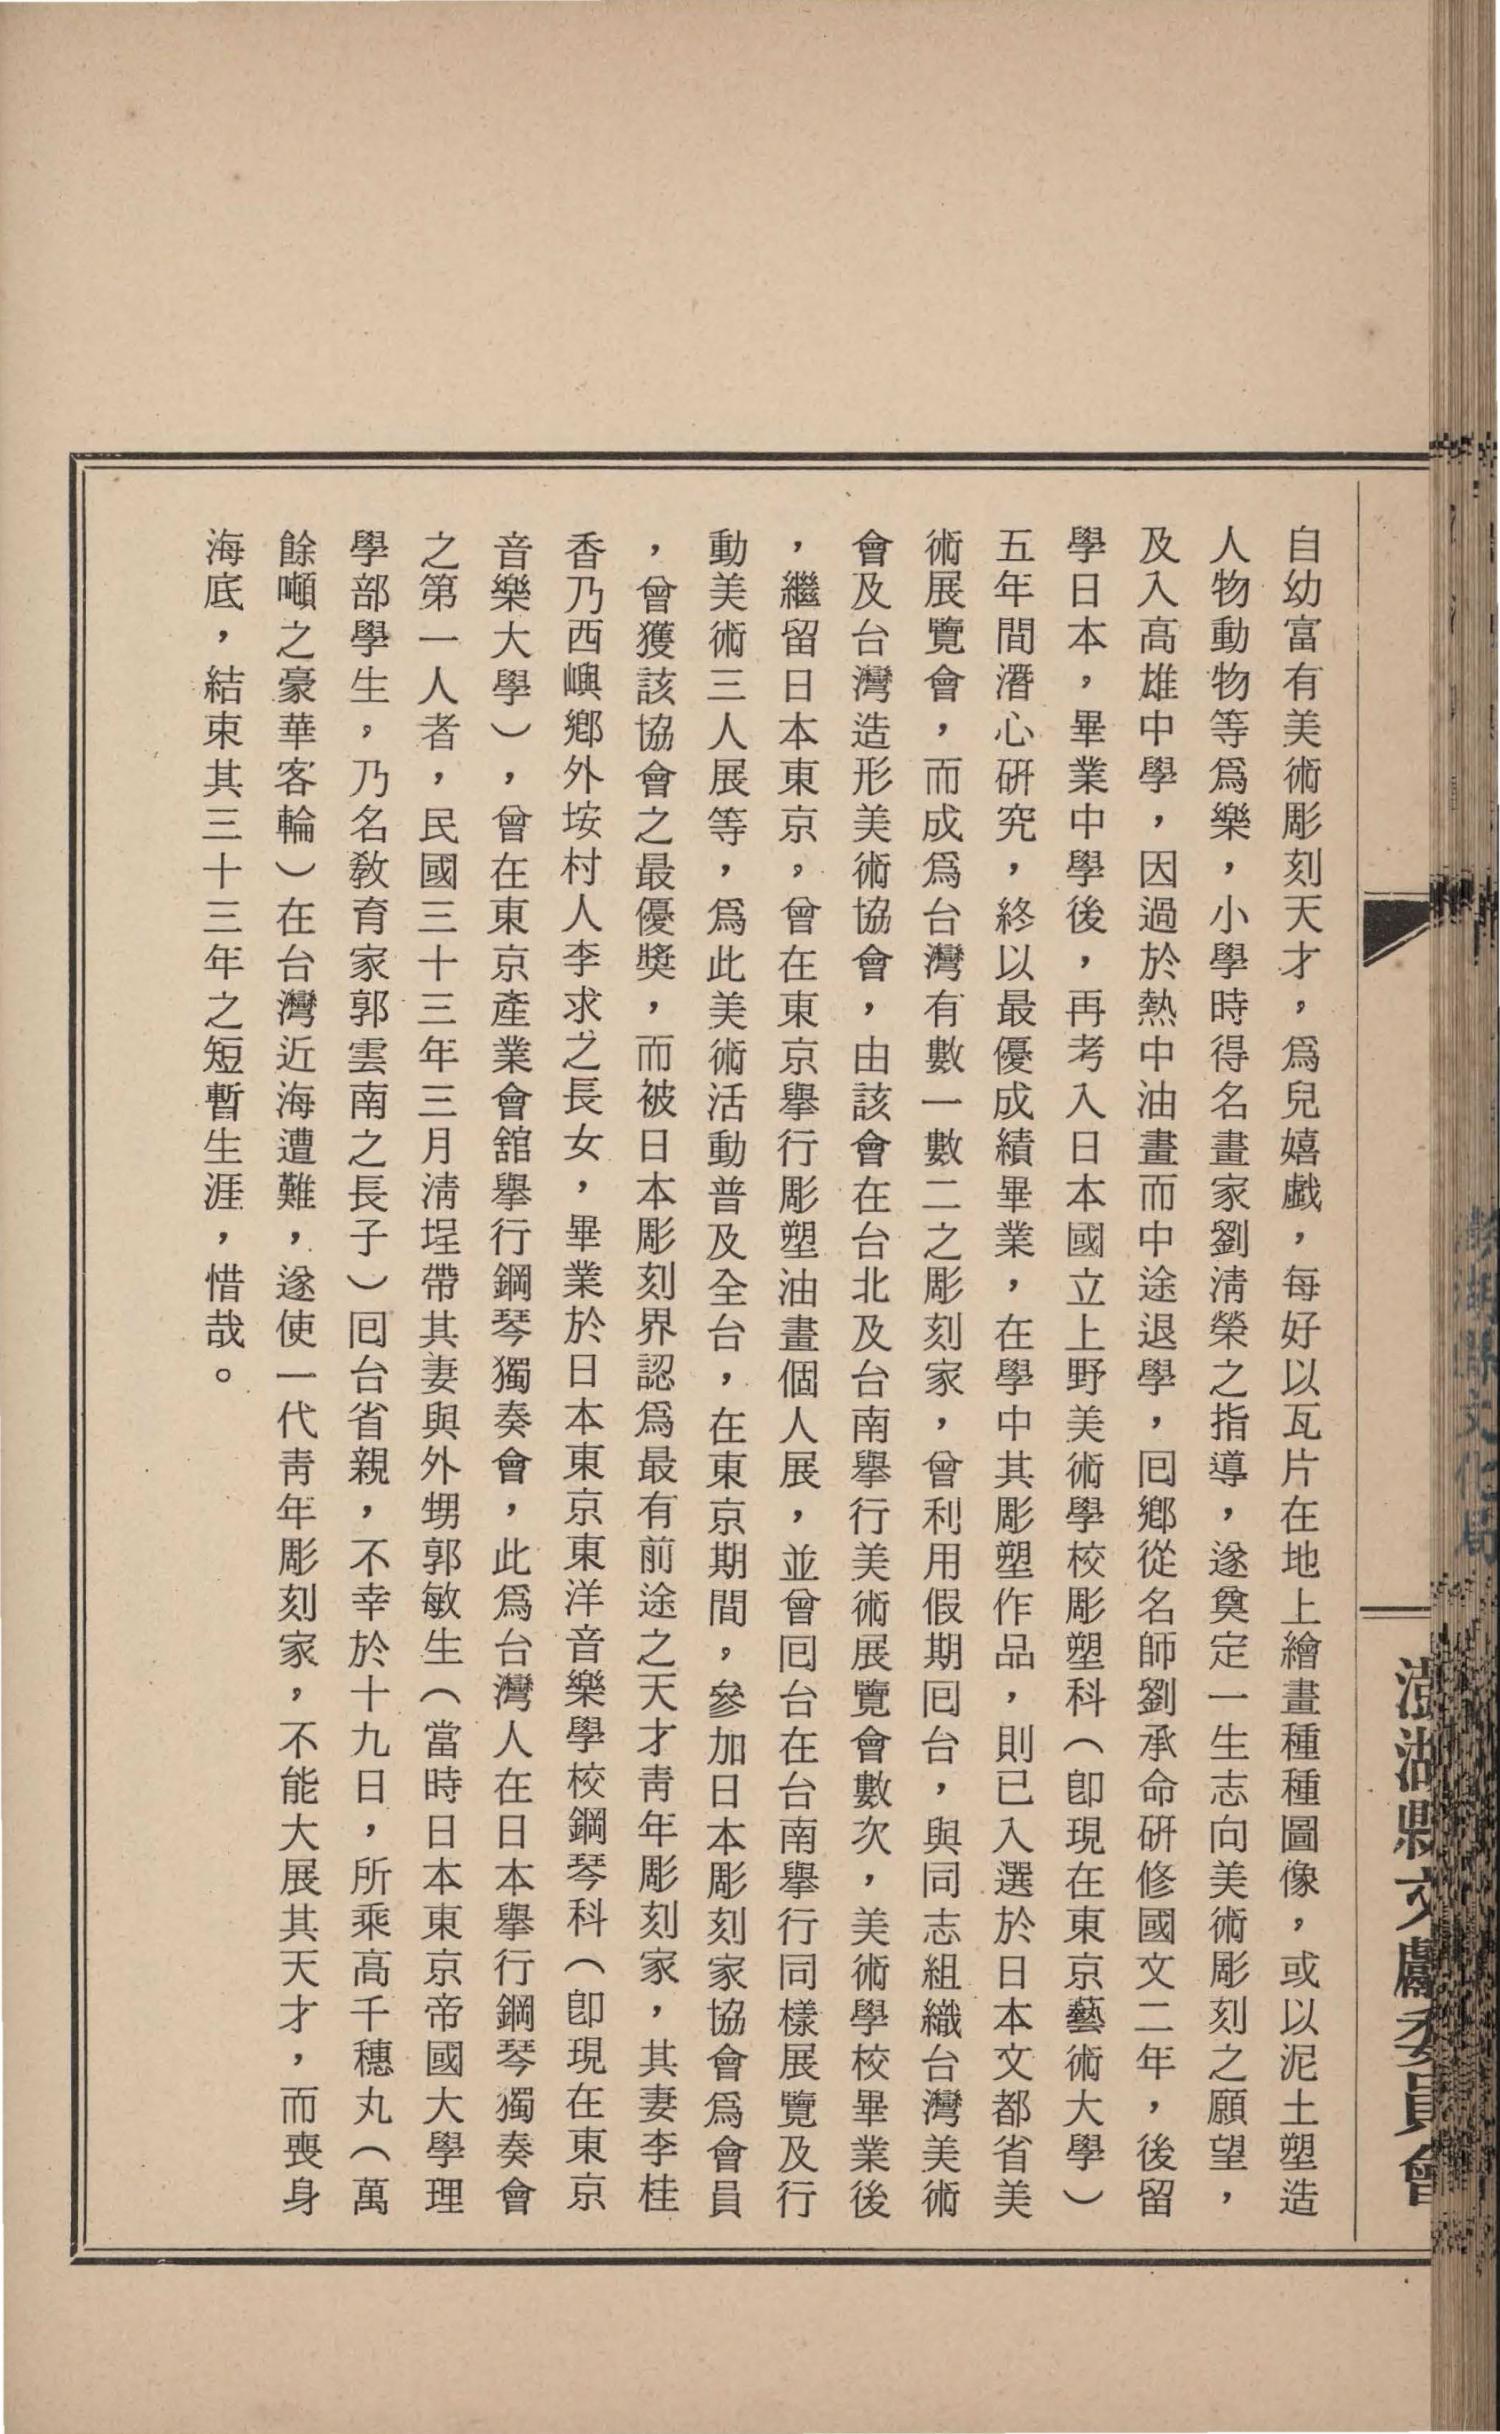 自幼富有美術彫刻天才，爲兒嬉戱，每好以瓦片在地上繪畫種種圖像，或以泥土塑造
人物動物等爲樂，小學時得名畫家劉淸榮之指導，遂奠定一生志向美術彫刻之願望，
及入高雄中學，因過於熱中油畫而中途退學，囘鄉從名師劉承命硏修國文二年，後留
學日本，畢業中學後，再考入日本國立上野美術學校彫塑科（卽現在東京藝術大學）
五年間潛心硏究，終以最優成績畢業，在學中其彫塑作品，則已入選於日本文都省美
術展覽會，而成爲台灣有數一數二之彫刻家，曾利用假期囘台，與同志組織台灣美術
會及台灣造形美術協會，由該會在台北及台南舉行美術展覽會數次，美術學校畢業後
，繼留日本東京，曾在東京舉行彫塑油畫個人展，並曾囘台在台南舉行同樣展覽及行
動美術三人展等，爲此美術活動普及全台，在東京期間，參加日本彫刻家協會爲會員
，曾獲該協會之最優獎，而被日本彫刻界認爲最有前途之天才靑年彫刻家，其妻李桂
香乃西嶼鄉外垵村人李求之長女，畢業於日本東京東洋音樂學校鋼琴科（卽現在東京
音樂大學），曾在東京產業會舘舉行鋼琴獨奏會，此爲台灣人在日本舉行鋼琴獨奏會
之第一人者，民國三十三年三月淸埕帶其妻與外甥郭敏生（當時日本東京帝國大學理
學部學生，乃名敎育家郭雲南之長子）囘台省親，不幸於十九日，所乘高千穗丸（萬
餘噸之豪華客輪）在台灣近海遭難，遂使一代靑年彫刻家，不能大展其天才，而喪身
海底，結束其三十三年之短暫生涯，惜哉。
澎湖縣文獻委員會
澎湖縣文化局